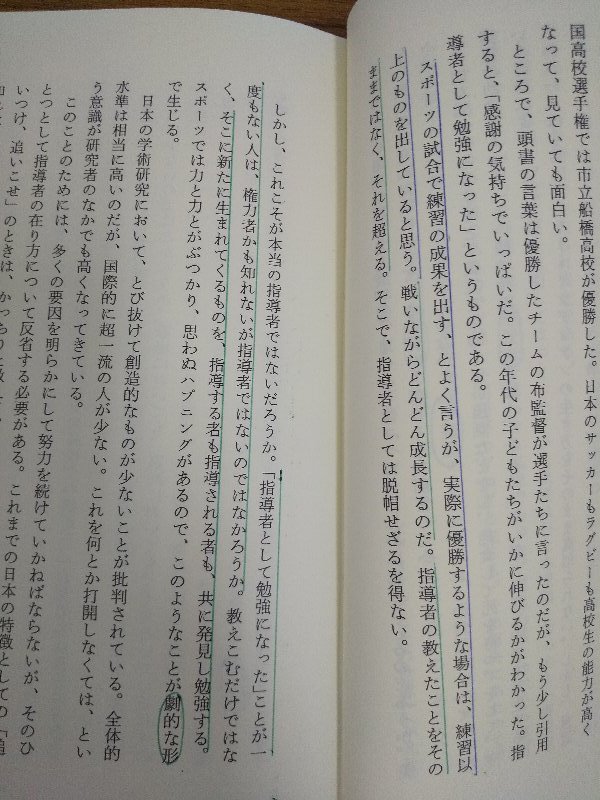 国高校選手権では市立船橋高校が優勝した。日本のサッカーもラグビーも高校生の能力が高く
なって、見ていても面白い。
ところで、頭書の言葉は優勝したチームの布監督が選手たちに言ったのだが、もう少し引用
すると、「感謝の気持ちでいっぱいだ。この年代の子どもたちがいかに伸びるかがわかった。指
導者として勉強になった」というものである。
スポーツの試合で練習の成果を出す、とよく言うが、実際に優勝するような場合は、練習以
上のものを出していると思う。戦いながらどんどん成長するのだ。指導者の教えたことをその
ままではなく、それを超える。そこで、指導者としては脱帽せざるを得ない。
しかし、これこそが本当の指導者ではないだろうか。「指導者として勉強になった」ことが一
度もない人は、権力者かも知れないが指導者ではないのではなかろうか。教えこむだけではな
く、そこに新たに生まれてくるものを、指導する者も指導される者も、共に発見し勉強する。
スポーツでは力と力とがぶつかり、思わぬハプニングがあるので、このようなことが劇的な形
で生じる。
日本の学術研究において、とび抜けて創造的なものが少ないことが批判されている。全体的
水準は相当に高いのだが、国際的に超一流の人が少ない。これを何とか打開しなくては、とい
う意識が研究者のなかでも高くなってきている。
このことのためには、多くの要因を明らかにして努力を続けていかねばならないが、そのひ
とつとして指導者の在り方について反省する必要がある。これまでの日本の特徴としての「追
いつけ、追いこせ」のときは、かっちりと